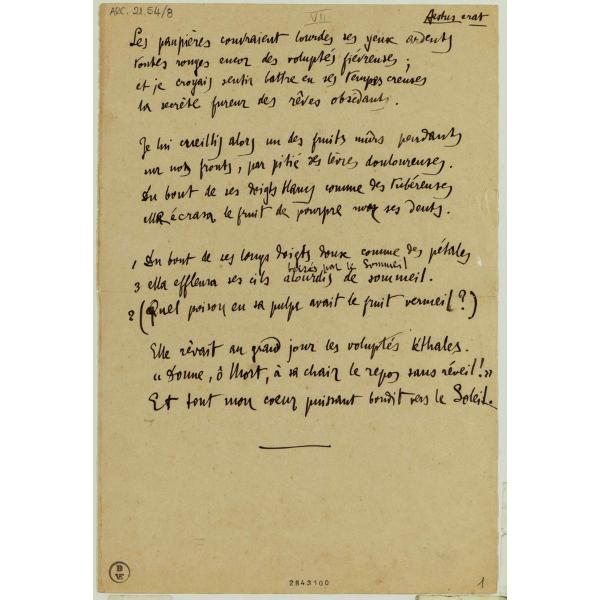 ARC. 21.54/8
VII
Aestus erat
Les paupières couvraient lourdes ses yeux ardents
toutes rouges encor des voluptés fiévreuses ;
et je croyais sentir battre en ses tempes creuses
la secrète fureur des rêves obsédants.
Je lui cueillis alors un des fruits mûrs pendants
sur nos fronts, par pitié des lèvres douloureuses.
Du bout de ses doigts blancs comme des tubéreuses
elle écrasa le fruit de pourpre ses dents.
1 Du bout de ses longs doigts doux comme des pétales
baisés par le Sommeil
3 elle effleura ses cils alourdis de sommeil.
2 (Quel poison en sa pulpe avait le fruit vermeil ?)
Elle rêvait au grand jour les voluptés léthales.
"Donne, ô Mort, à sa chair le repos sans réveil !"
Et tout mon coeur puissant bondit vers le Soleil.
2843100
1